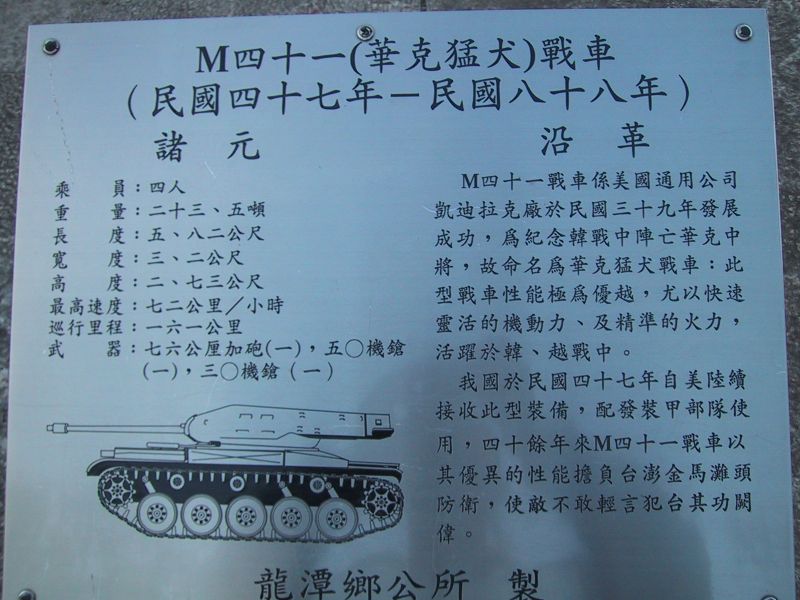 M四十一(華克猛犬)戰車
(民國四十七年－民國八十八年)
諸元
乘員：四人
重量：二十三、五噸
長度：五、八二公尺
寬度：三、二公尺
高度：二、七三公尺
最高速度：七二公里／小時
巡行里程：一六一公里
武器：七六公厘加砲(一)，五〇機鎗
(一)，三〇機鎗(一)
沿革
M四十一戰車係美國通用公司
凱迪拉克廠於民國三十九年發展
成功，為紀念韓戰中陣亡華克中
將，故命名為華克猛犬戰車：此
型戰車性能極為優越，尤以快速
靈活的機動力、及精準的火力，
活躍於韓、越戰中。
我國於民國四十七年自美陸續
接收此型裝備，配發裝甲部隊使
用，四十餘年來M四十一戰車以
其優異的性能擔負台澎金馬灘頭
防衛，使敵不敢輕言犯台其功闕
偉。
龍潭鄉公所 製